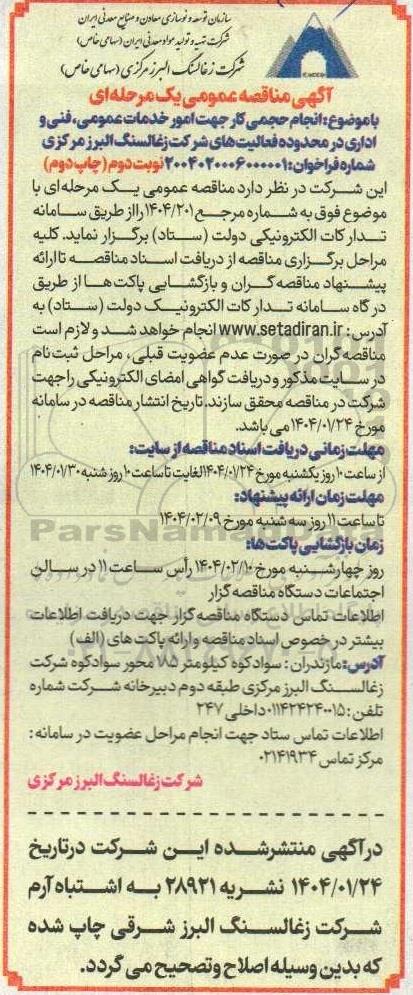 سازمان توسعه و نوسازی معادن و صنایع معدنی ایران
شرکت تهیه و تولید مواد معدنی ایران (سهامی خاص)
شرکت زغالسنگ البرز مرکزی (سهامی خاص)
آگهی مناقصه عمومی یک مرحله ای
با موضوع: انجام حجمی کار جهت امور خدمات عمومی، فنی و
اداری در محدوده فعالیت های شرکت زغالسنگ البرز مرکزی
شماره فراخوان: ۲۰۰۴۰۲۰۰۰۶۰۰۰۰۰۱ نوبت دوم (چاپ دوم)
این شرکت در نظر دارد مناقصه عمومی یک مرحله ای با
موضوع فوق به شماره مرجع ۱۴۰۴/۲۰۱ را از طریق سامانه
تدارکات الکترونیکی دولت (ستاد) برگزار نماید. کلیه
مراحل برگزاری مناقصه از دریافت اسناد مناقصه تا ارائه
پیشنهاد مناقصه گران و بازگشایی پاکت ها از طریق
درگاه سامانه تدارکات الکترونیک دولت (ستاد) به
آدرس: www.setadiran.ir انجام خواهد شد و لازم است
مناقصه گران در صورت عدم عضویت قبلی، مراحل ثبت نام
در سایت مذکور و دریافت گواهی امضای الکترونیکی را جهت
شرکت در مناقصه محقق سازند. تاریخ انتشار مناقصه در سامانه
مورخ ۱۴۰۴/۰۱/۲۴ می باشد.
مهلت زمانی دریافت اسناد مناقصه از سایت:
از ساعت ۱۰ روز یکشنبه مورخ ۱۴۰۴/۰۱/۲۴ لغایت تا ساعت ۱۰ روز شنبه ۱۴۰۴/۰۱/۳۰
مهلت زمان ارائه پیشنهاد:
تا ساعت ۱۱ روز سه شنبه مورخ ۱۴۰۴/۰۲/۰۹
زمان بازگشایی پاکت ها:
روز چهارشنبه مورخ ۱۴۰۴/۰۲/۱۰ رأس ساعت ۱۱ در سالن
اجتماعات دستگاه مناقصه گزار
اطلاعات تماس دستگاه مناقصه گزار جهت دریافت اطلاعات
بیشتر در خصوص اسناد مناقصه و ارائه پاکت های (الف)
آدرس: مازندران: سوادکوه کیلومتر ۸۵ محور سوادکوه شرکت
زغالسنگ البرز مرکزی طبقه دوم دبیرخانه شرکت شماره
تلفن: ۰۱۱۴۲۴۲۴۰۰۱۵ داخلی ۲۴۷
اطلاعات تماس ستاد جهت انجام مراحل عضویت در سامانه:
مرکز تماس ۰۲۱۴۱۹۳۴
شرکت زغالسنگ البرز مرکزی
در آگهی منتشر شده این شرکت در تاریخ
۱۴۰۴/۰۱/۲۴ نشریه ۲۸۹۲۱ به اشتباه آرم
شرکت زغالسنگ البرز شرقی چاپ شده
که بدین وسیله اصلاح و تصحیح می گردد.